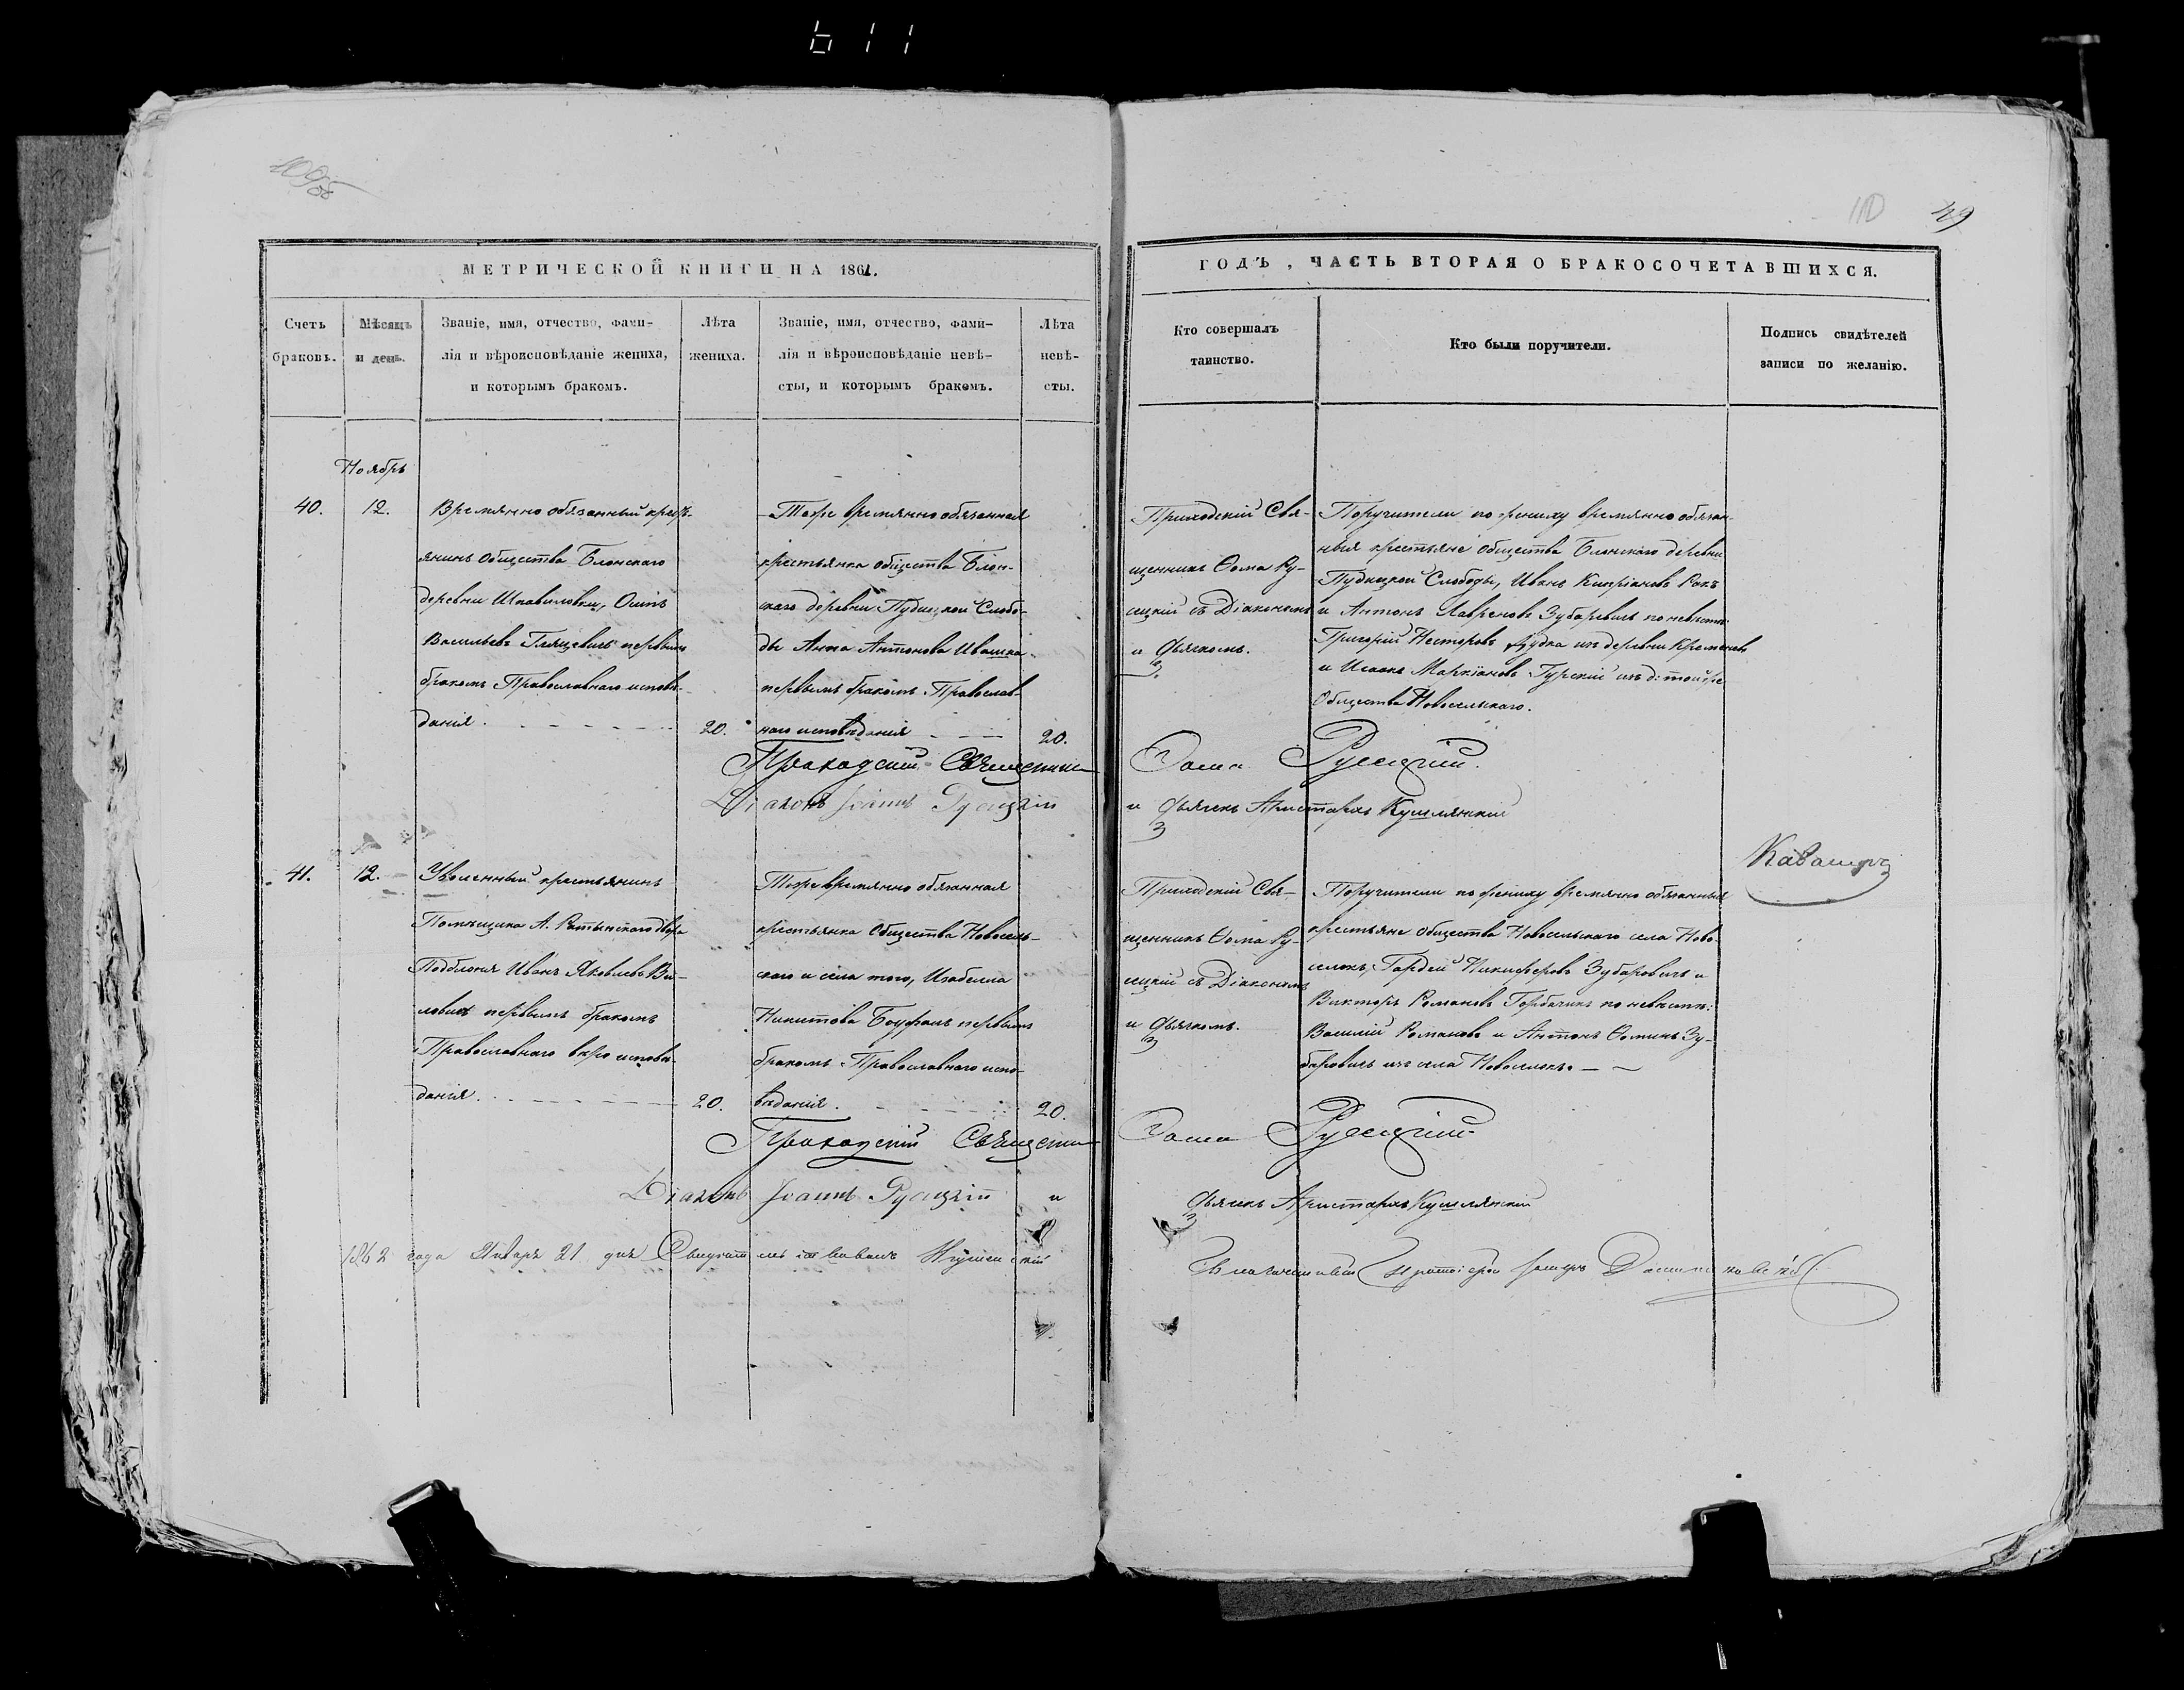 611
109об
110 49
МЕТРИЧЕСКОЙ КНИГИ НА 1861.
ГОДЪ, ЧАСТЬ ВТОРАЯ О БРАКОСОЧЕТАВШИХСЯ.
Счетъ
браковъ.
Мѣсяцъ
и день.
Званіе, имя, отчество, фами-
лія и вѣроисповѣданіе жениха,
и которымъ бракомъ.
Лѣта
жениха.
Званіе, имя, отчество, фами-
лія и вѣроисповѣданіе невѣ-
сты, и которымъ бракомъ.
Лѣта
невѣ-
сты.
Кто совершалъ
таинство.
Кто были поручители.
Подпись свидѣтелей
записи по желанію.
Ноябрь
40.
12.
Времянно обязанный крест-
янинъ Общества Блонскаго
деревни Осипъ
Васильевъ первымъ
бракомъ Православнаго исповѣ-
данія.
20.
Тоже времянно обязанная
крестьянка общества Блон-
скаго деревни Пудицкой Слобо-
ды Анна Антонова Ивашка
первымъ бракомъ Православ-
наго исповѣданія
20.
Приходскій Свя-
щенникъ Ѳома Ру-
сецкій съ Діакономъ
и дьячкомъ.
Поручители по жениху времянно обязан-
ныя крестьяне общества Блонскаго деревни
Пудицкой Слободы, Иванъ Кипріановъ Рокъ
и Антонъ Лавреновъ Зубаревичъ по невѣстѣ:
Григорій Несторовъ Дудка изъ деревни
и Исаакъ Маркіановъ Гурскій изъ д: той же
Общества Новосельскаго.
Приходскій Священникъ Ѳома Русецкій.
Діаконъ Іоаннъ Русецкій и дьячекъ Аристархъ Кушлянскій
41.
12.
Уволенный крестьянинъ
Помѣщика А. двора
Подблонья Иванъ Яковлевъ Ви-
ловичъ первымъ бракомъ
Православнаго вѣроисповѣ-
данія.
20.
Тоже времянно обязанная
крестьянка Общества Новосель-
скаго и села того, Изабелла
Никитова первымъ
бракомъ Православнаго испо-
вѣданія.
20.
Приходскій Свя-
щенникъ Ѳома Ру-
сецкій съ Діакономъ
и дьячкомъ.
Поручители по жениху времянно обязанныя
крестьяне общества Новосельскаго села Ново-
селокъ, Гордей Никифоровъ Зубаровичъ и
Викторъ Романовъ Горбачикъ по невѣстѣ:
Василій Романовъ и Антонъ Ѳоминъ Зу-
баровичъ изъ села Новоселокъ.
Приходскій Священникъ Ѳома Русецкій
Діаконъ Іоаннъ Русецкій и дьячекъ Аристархъ Кушлянскій
1862 года Января 21 дня Игуменскій
Благочинный Протоіерей